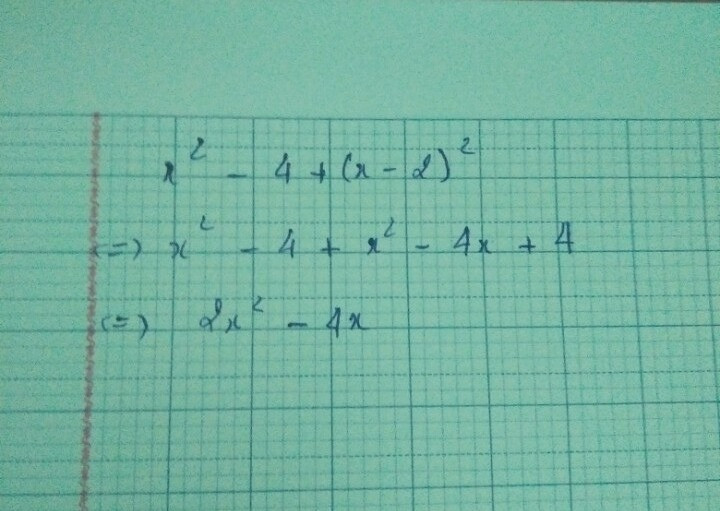 x² - 4 + (x - 2)²
(=) x² - 4 + x² - 4x + 4
(=) 2x² - 4x